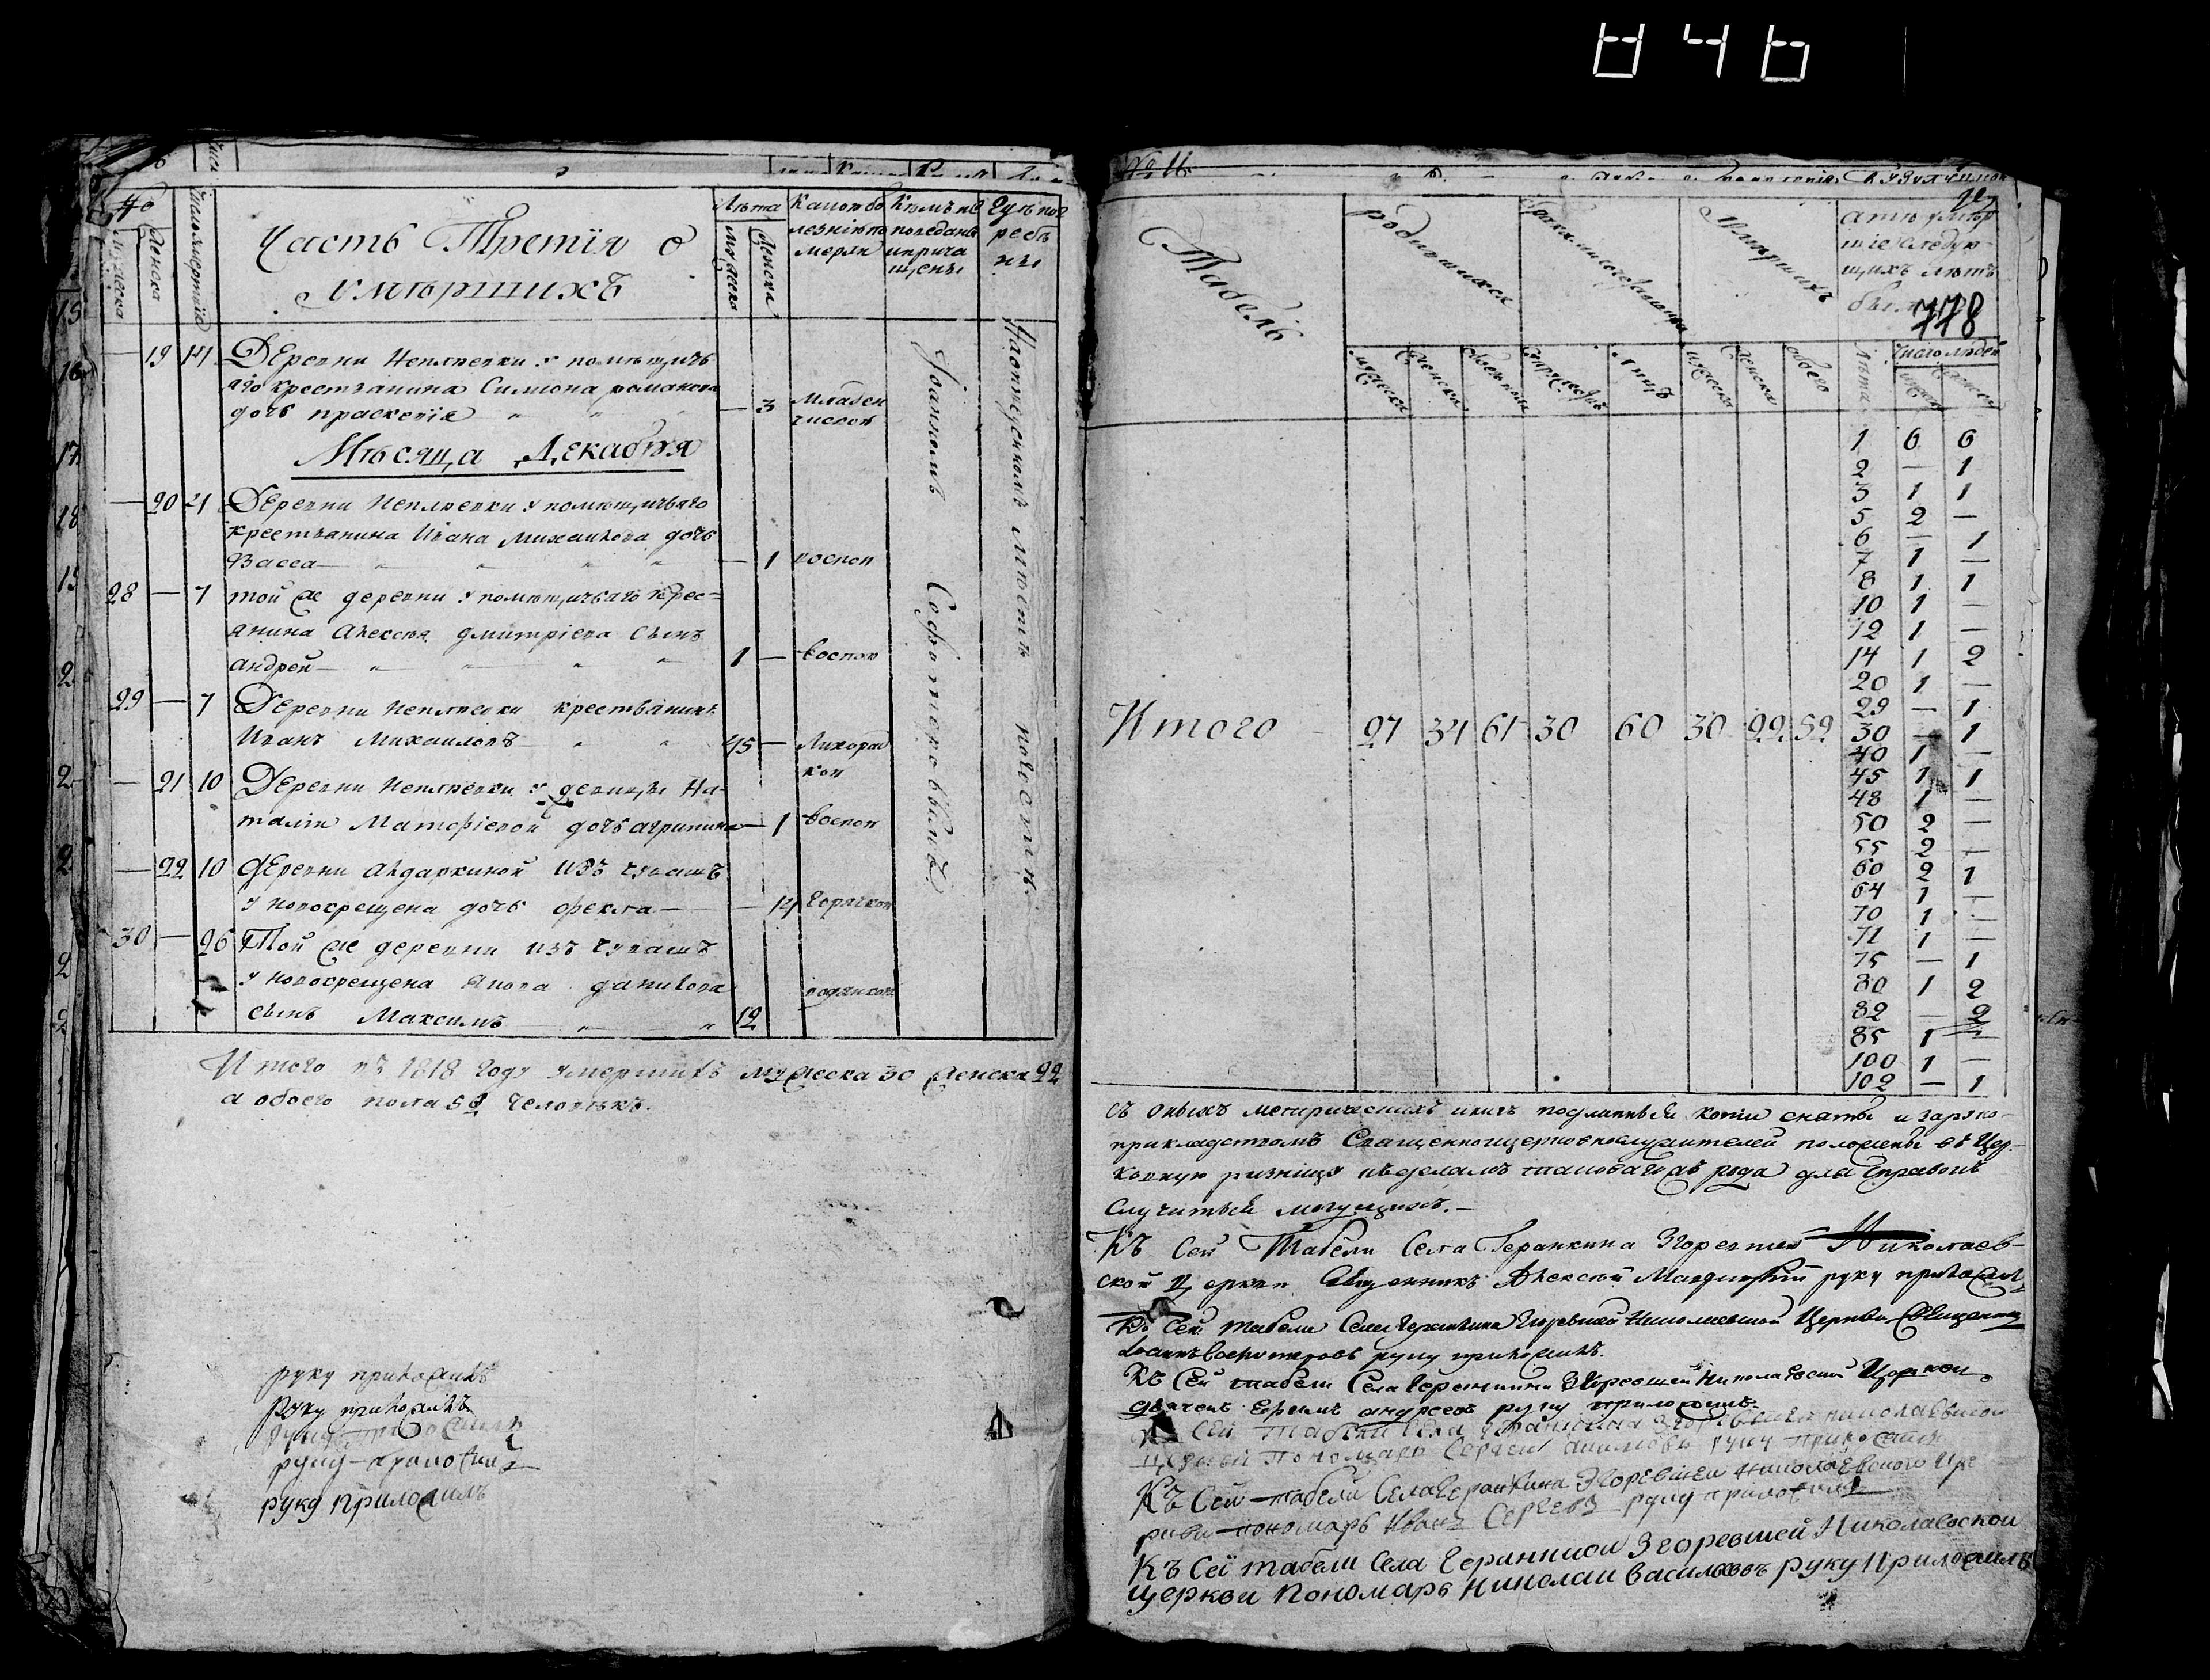 846
№
мужеска
женска
число умертвiя
Часть Третiя о
умѣршихъ
Лѣта
мужеска
женска
Какою бо
лезнiю по
мерли
Кѣмъ ис
поведаны
и прича
щены
Гдѣ пог
ребѣ
ны
— 19 14 Деревни Неплюевки у помѣщичь
яго крестьянина Симiона романова
дочь праскевiя — 3 Младен
ческою
Мѣсяца Декабря
— 20 4 Деревни Неплюевки у помѣщичьяго
крестьянина Ивана Михаилова дочь
Васса — 1 воспою
28 — 7 той же деревни у помѣщичьяго крес=
янина Алексѣя Дмитрiева сынъ
андрей 1 — воспою
29 — 7 Деревни Неплюевки крестьянинъ
Иванъ Михаиловъ 45 — Лихорад
кою
— 21 10 Деревни Неплюевки у девицы На-
талiи Матофiевой дочь агрипина — 1 воспою
— 22 10 Деревни Андаркиной изъ чувашъ
у новокрещена дочь фекла — 14 Горячкою
30 — 26 Той же деревни изъ чувашъ
у новокрещена данилова
сынъ Максимъ 12
Iоанномъ
На отпускномъ мѣстѣ
Итого въ 1818 году умершихъ мужеска 30 женска 22
а обоего пола 52 человѣкъ.
руку приложилъ
руку приложилъ
руку приложилъ
руку приложилъ
руку приложилъ
Табель
родившихся
бракомъ сочетавшихся
умершихъ
778
мужеска
женска
обоего
лицъ
мужеска
женска
обоего
Лѣта
Число людей
мужск
женск
1 6 6
2 — 1
3 1 1
5 2 —
6 — 1
7 1 —
8 1 1
10 1 —
12 1 —
14 1 2
20 1 —
29 — 1
30 — 1
40 1 —
45 1 1
48 1 —
50 2 —
55 2 —
60 2 1
64 1 —
70 1 —
71 1 —
75 — 1
80 1 2
82 — 2
85 1 —
100 1 —
102 — 1
Итого 27 34 61 30 60 30 22 52
съ оныхъ метрическихъ книгъ подлинныя копiи сняты и заруко-
прикладствомъ Священноцерковнослужителей положены въ Цер-
ковную ризницу къ деламъ таковагожъ рода для справокъ
случиться могущихъ.—
Къ сей Табели Села Геранкина Згоревшей Николаев-
ской Церкви Священникъ Алексѣй руку приложилъ
Къ сей табели Села Геранкина Згоревшей Николаевской Церкви Священник
Iоаннъ руку приложилъ.
Къ сей табели Села Геранкина Згоревшей Николаевской Церкви
дьячекъ Ефимъ андреевъ руку приложилъ.
Къ сей табели Села Геранкина Згоревшей николаевской
церкви Пономарь Сергей руку приложилъ
Къ Сей табели Села Геранкина Згоревшей Николаевского Це
ркви пономарь Иванъ Сергеевъ руку приложилъ
Къ Сеї табели Села Геранкиои Згоревшей Николаевскои
церкви Пономарь Николаи Васильевъ руку приложилъ